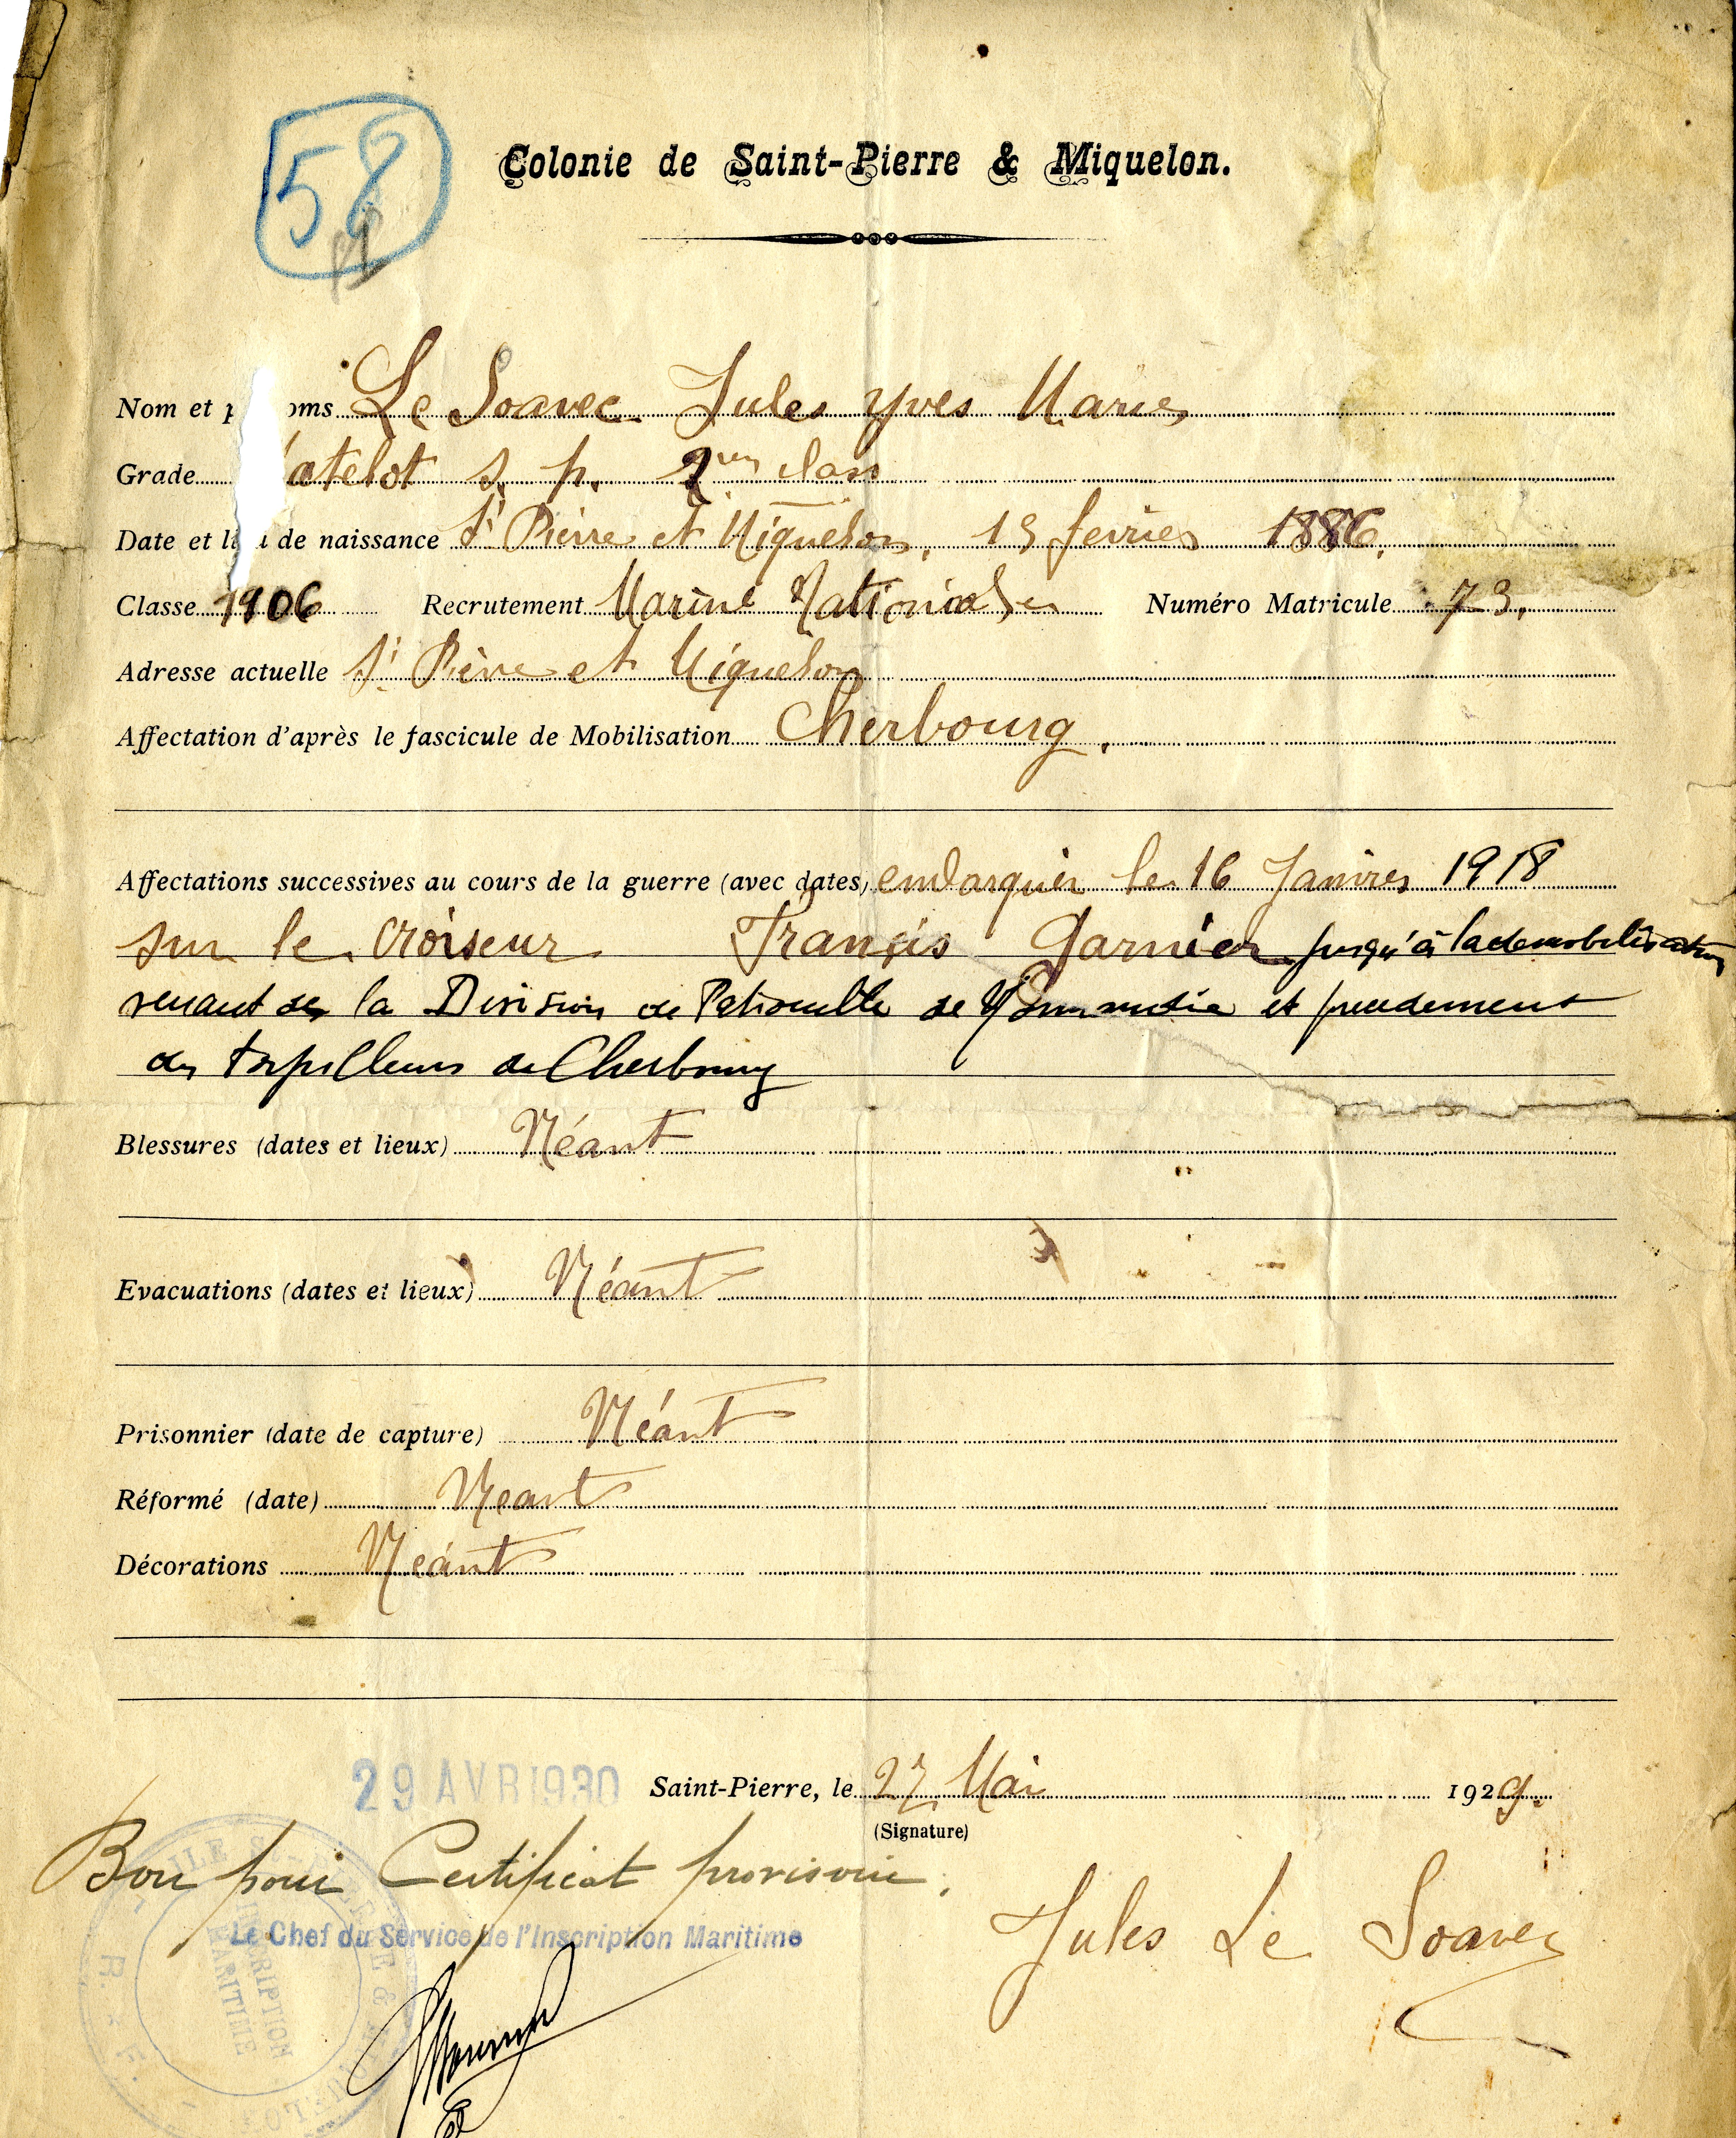 58
Colonie de Saint-Pierre & Miquelon.
Nom et p oms Le Soavec Jules Yves Marie
Grade atelot s. p. 2em class
Date et li u de naissance St Pierre et Miquelon. 15 fevrier 1886.
Classe 1906 Recrutement Marine Nationale Numéro Matricule 73.
Adresse actuelle St Pierre et Miquelon
Affectation d'après le fascicule de Mobilisation Cherbourg.
Affectations successives au cours de la guerre (avec dates) embarquer le 16 Janvier 1918
sur le Croiseur Françis Garnier jusqu'à la demobilisation
venant de la Division de Patrouille de Normandie et precedement
des torpilleurs de Cherbourg
Blessures (dates et lieux) Néant
Evacuations (dates et lieux) Néant
Prisonnier (date de capture) Néant
Réformé (date) Neant
Décorations Néant
29 AVR 1930 Saint-Pierre, le 27 Mai 1929.
(Signature)
Bon pour Certificat provisoire.
Le Chef du Service de l'Inscription Maritime
Jules Le Soavec
INSCRIPTION
MARITIME
R. F.